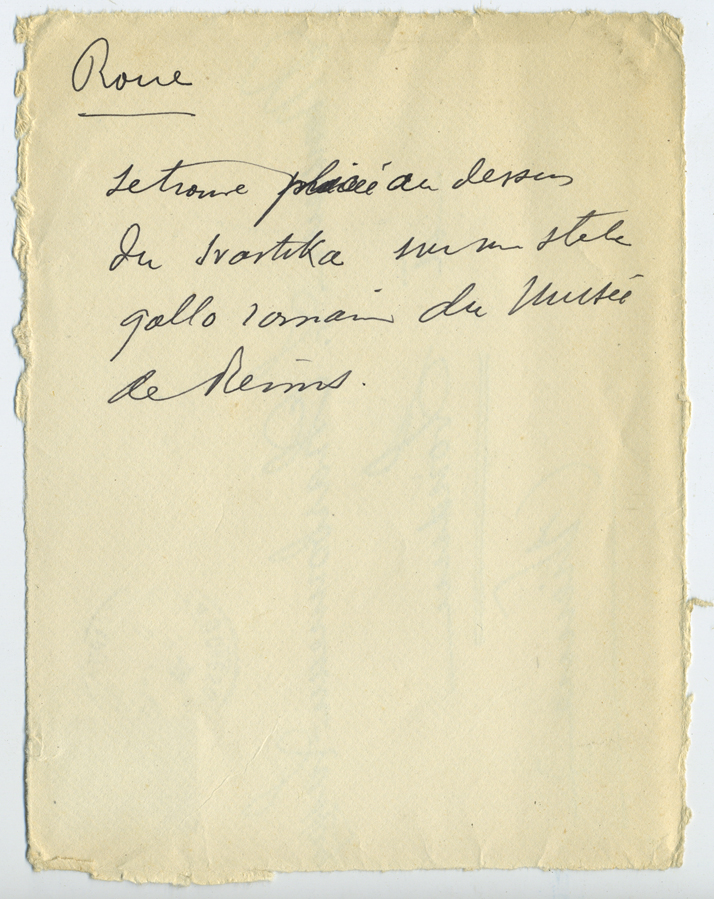 Roue
se trouve placée au dessus
du svastika sur une stele
gallo romain du Musée
de Reims.